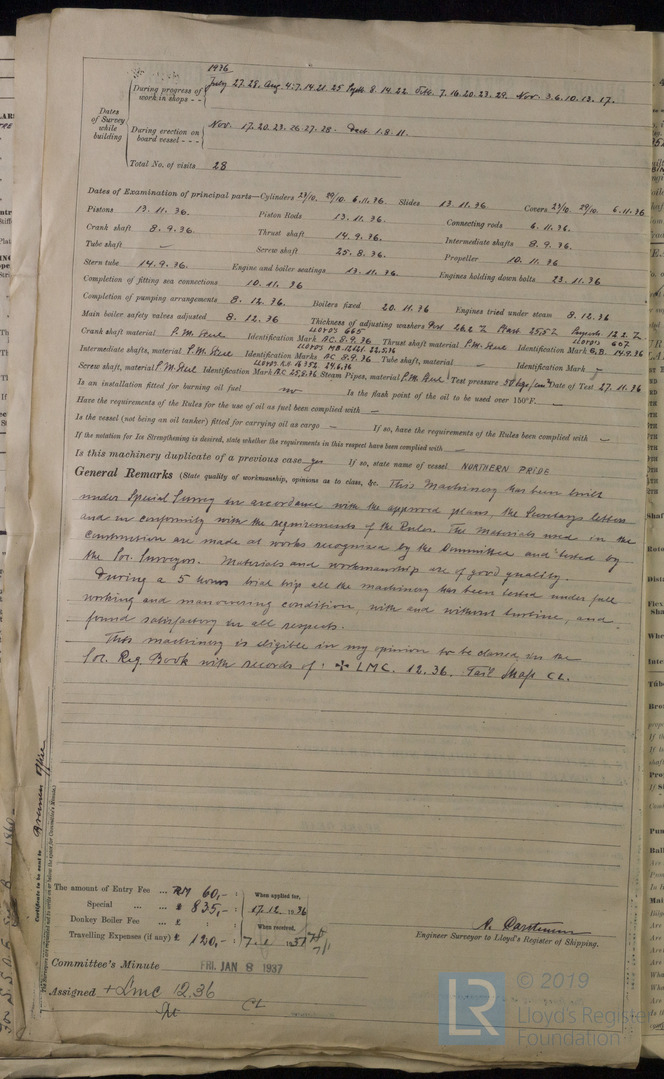 1936
During progress of work in shops - - July 27. 28. Aug. 4. 7. 14. 21. 25 Sept. 8. 14. 22. Octb. 7. 16. 20. 23. 29. Nov. 3. 6. 10. 13. 17.
Dates of Survey while building
During erection on board vessel - - - Nov. 17. 20. 23. 26. 27. 28. Dect. 1. 8. 11.
Total No. of visits 28
Dates of Examination of principal parts—Cylinders 23/10. 29/10. 6.11.36 Slides 13.11.36 Covers 23/10. 29/10. 6.11.36
Pistons 13.11.36. Piston Rods 13.11.36. Connecting rods 6.11.36.
Crank shaft 8.9.36. Thrust shaft 14.9.36. Intermediate shafts 8.9.36.
Tube shaft — Screw shaft 25.8.36. Propeller 10.11.36
Stern tube 14.9.36. Engine and boiler seatings 13.11.36. Engines holding down bolts 23.11.36
Completion of fitting sea connections 10.11.36
Completion of pumping arrangements 8.12.36. Boilers fixed 20.11.36 Engines tried under steam 8.12.36
Main boiler safety valves adjusted 8.12.36 Thickness of adjusting washers
Crank shaft material S.M. Steel Identification Mark LLOYDS 665 AC. 8.9.36 Thrust shaft material S.M. Steel Identification Mark LLOYDS 607 G.B. 14.9.36
Intermediate shafts, material S.M. Steel Identification Marks AC 8.9.36 Tube shaft, material — Identification Mark —
Screw shaft, material S.M. Steel Identification Mark AC 25.8.36 Steam Pipes, material S.M. Steel Test pressure Date of Test 27.11.36
Is an installation fitted for burning oil fuel no Is the flash point of the oil to be used over 150°F. —
Have the requirements of the Rules for the use of oil as fuel been complied with —
Is the vessel (not being an oil tanker) fitted for carrying oil as cargo — If so, have the requirements of the Rules been complied with —
If the notation for Ice Strengthening is desired, state whether the requirements in this respect have been complied with —
Is this machinery duplicate of a previous case yes If so, state name of vessel NORTHERN PRIDE
General Remarks (State quality of workmanship, opinions as to class, &c. This Machinery has been built
under Special Survey in accordance with the approved plans, the Secretary's letters
and in conformity with the requirements of the Rules. The Materials used in the
construction are made at works recognised by the Committee and tested by
the Soc. Surveyors. Materials and workmanship are of good quality.
During a 5 hours trial trip all the machinery has been tested under full
working and manoeuvring condition, with and without turbine, and
found satisfactory in all respects.
This machinery is eligible in my opinion to be classed in the
Soc. Reg. Book with records of: ✠ LMC. 12.36. Tail shaft CL.
Certificate to be sent to Bremen office
The amount of Entry Fee ... RM 60,- : When applied for,
Special ... £ 835,- : 17.12. 1936
Donkey Boiler Fee ... £ : When received,
Travelling Expenses (if any) £ 120,- : 7.1 1937
Engineer Surveyor to Lloyd's Register of Shipping.
Committee's Minute FRI. JAN 8 1937
Assigned + Lmc 12.36
CL
© 2019
LR
Lloyd's Register
Foundation